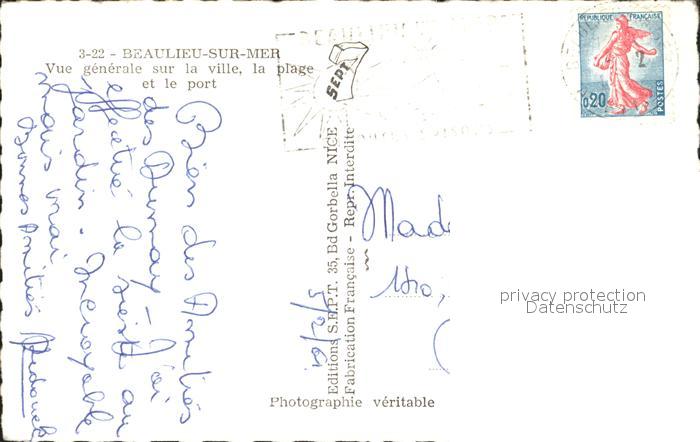 3-22 - BEAULIEU-SUR-MER
Vue générale sur la ville, la plage
et le port
SEPT
REPUBLIQUE FRANÇAISE
0,20
POSTES
Bien des Amitiés
des Dunay - J'ai
effectué la sieste au
jardin - Incroyable
mais vrai
Bonnes Amitiés
Editions S.E.P.T. 35, Bd Gorbella NICE
Fabrication Française - Repr. Interdite
5/2/61
Mad
privacy protection
Datenschutz
Photographie véritable